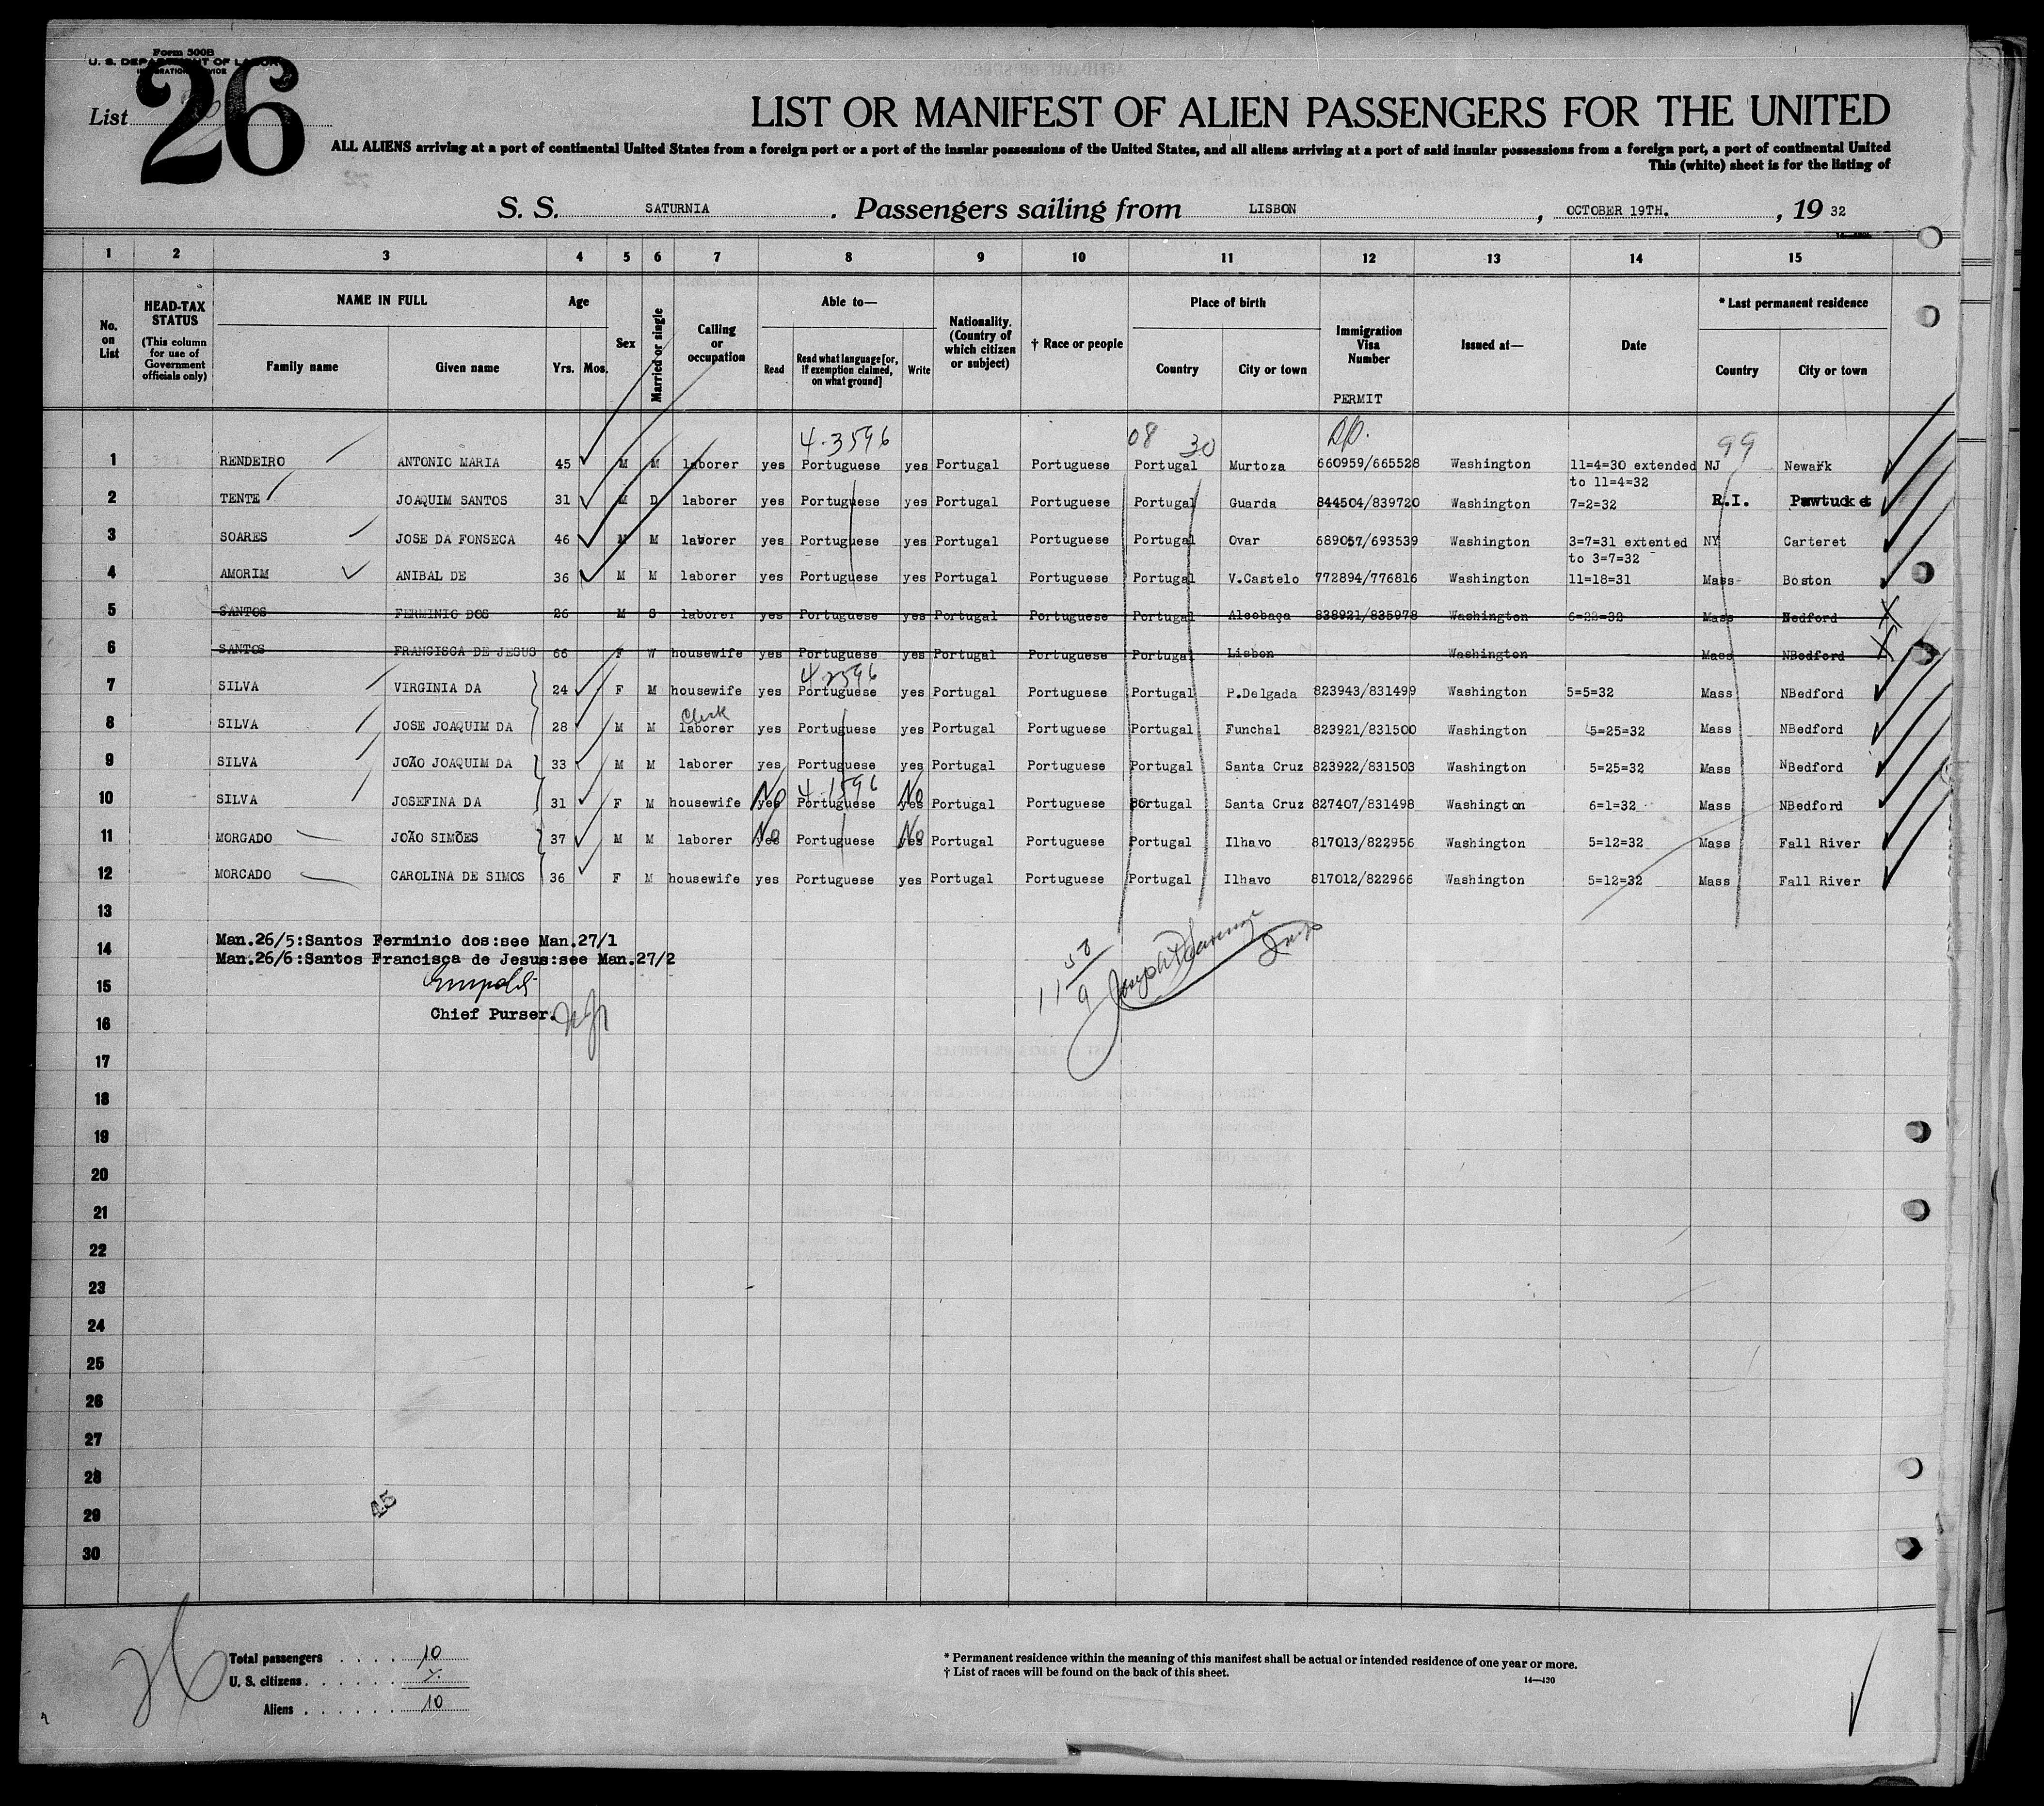 Form 500B
U. S. DEPARTMENT OF LABOR
IMMIGRATION SERVICE
List 26
LIST OR MANIFEST OF ALIEN PASSENGERS FOR THE UNITED
ALL ALIENS arriving at a port of continental United States from a foreign port or a port of the insular possessions of the United States, and all aliens arriving at a port of said insular possessions from a foreign port, a port of continental United
This (white) sheet is for the listing of
S. S. SATURNIA. Passengers sailing from LISBON, OCTOBER 19TH., 19 32
1 2 3 4 5 6 7 8 9 10 11 12 13 14 15
No. on List
HEAD-TAX STATUS
(This column for use of Government officials only)
NAME IN FULL
Family name Given name
Age
Yrs. Mos.
Sex
Married or single
Calling or occupation
Able to—
Read Read what language [or, if exemption claimed, on what ground] Write
Nationality. (Country of which citizen or subject)
† Race or people
Place of birth
Country City or town
Immigration Visa Number
PERMIT
Issued at—
Date
* Last permanent residence
Country City or town
4-3596 08 30 99
1 RENDEIRO ANTONIO MARIA 45 M M laborer yes Portuguese yes Portugal Portuguese Portugal Murtoza 660959/665528 Washington 11=4=30 extended NJ Newark
to 11=4=32
2 TENTE JOAQUIM SANTOS 31 M D laborer yes Portuguese yes Portugal Portuguese Portugal Guarda 844504/839720 Washington 7=2=32 R.I. Pawtucket
3 SOARES JOSE DA FONSECA 46 M M laborer yes Portuguese yes Portugal Portuguese Portugal Ovar 689057/693539 Washington 3=7=31 extented NY Carteret
to 3=7=32
4 AMORIM ANIBAL DE 36 M M laborer yes Portuguese yes Portugal Portuguese Portugal V.Castelo 772894/776816 Washington 11=18=31 Mass Boston
5 SANTOS FERMINIO DOS 26 M S laborer yes Portuguese yes Portugal Portuguese Portugal Alcobaça 838921/835978 Washington 6=22=32 Mass Bedford
6 SANTOS FRANCISCA DE JESUS 66 F W housewife yes Portuguese yes Portugal Portuguese Portugal Lisbon Washington Mass NBedford
4-2596
7 SILVA VIRGINIA DA 24 F M housewife yes Portuguese yes Portugal Portuguese Portugal P.Delgada 823943/831499 Washington 5=5=32 Mass NBedford
Clerk
8 SILVA JOSE JOAQUIM DA 28 M M laborer yes Portuguese yes Portugal Portuguese Portugal Funchal 823921/831500 Washington 5=25=32 Mass NBedford
9 SILVA JOÃO JOAQUIM DA 33 M M laborer yes Portuguese yes Portugal Portuguese Portugal Santa Cruz 823922/831503 Washington 5=25=32 Mass NBedford
No 4-1596 No
10 SILVA JOSEFINA DA 31 F M housewife yes Portuguese yes Portugal Portuguese Portugal Santa Cruz 827407/831498 Washington 6=1=32 Mass NBedford
No No
11 MORGADO JOÃO SIMÕES 37 M M laborer yes Portuguese yes Portugal Portuguese Portugal Ilhavo 817013/822956 Washington 5=12=32 Mass Fall River
12 MORCADO CAROLINA DE SIMOS 36 F M housewife yes Portuguese yes Portugal Portuguese Portugal Ilhavo 817012/822966 Washington 5=12=32 Mass Fall River
13
14 Man.26/5:Santos Ferminio dos:see Man.27/1
Man.26/6:Santos Francisca de Jesus:see Man.27/2
15
Chief Purser.
16
17
18
19
20
21
22
23
24
25
26
27
28
29
30
45
26
Total passengers . . . . 10
U. S. citizens . . . . . .
Aliens . . . . . . 10
* Permanent residence within the meaning of this manifest shall be actual or intended residence of one year or more.
† List of races will be found on the back of this sheet.
14—430